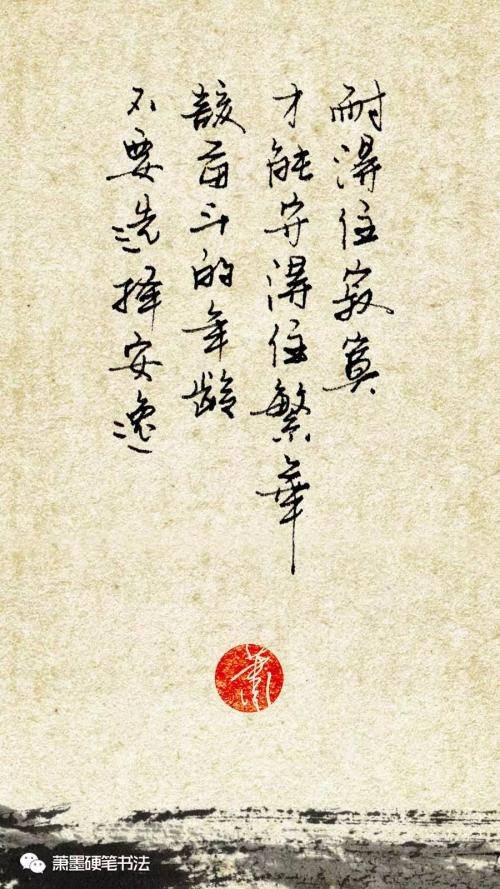 耐得住寂寞
才能守得住繁華
該奋斗的年齡
不要选择安逸
萧墨硬笔书法